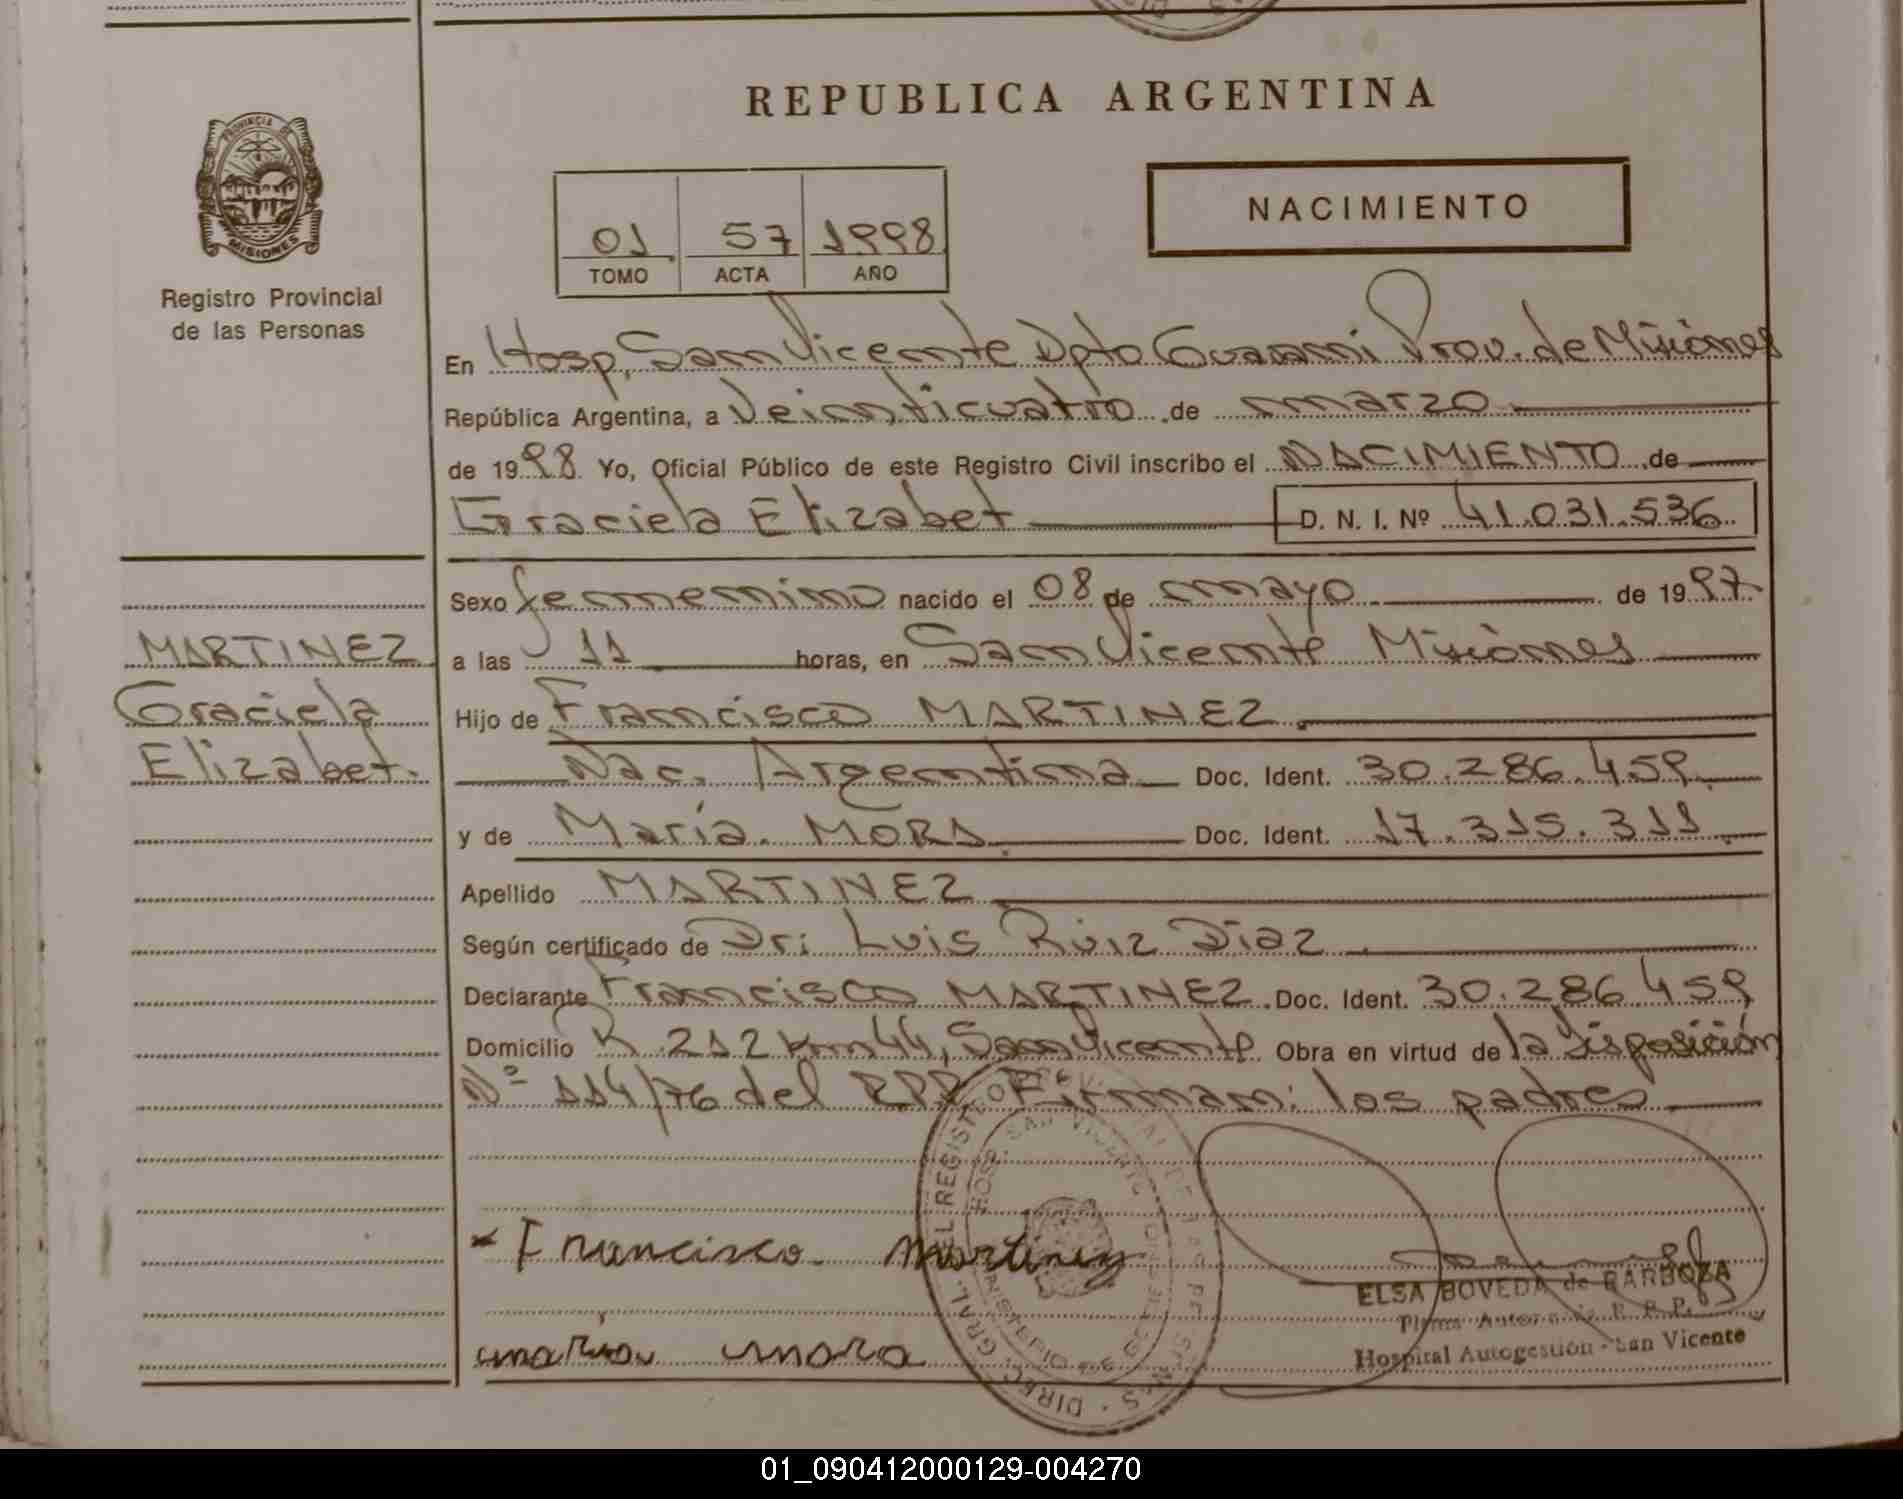 REPUBLICA ARGENTINA
PROVINCIA DE
MISIONES
Registro Provincial
de las Personas
01 57 1998
TOMO ACTA AÑO
NACIMIENTO
En Hosp, San Vicente Dpto Guaraní Prov. de Misiones
República Argentina, a Veinticuatro de marzo
de 1998 Yo, Oficial Público de este Registro Civil inscribo el NACIMIENTO de
Graciela Elizabet D. N. I. Nº 41.031.536
Sexo femenino nacido el 08 de mayo de 1997
a las 11 horas, en San Vicente Misiones
MARTINEZ
Graciela
Elizabet.
Hijo de Francisco MARTINEZ
Nac. Argentina Doc. Ident. 30.286.459
y de María MORA Doc. Ident. 17.315.311
Apellido MARTINEZ
Según certificado de Dr: Luis Ruiz Díaz
Declarante Francisco MARTINEZ Doc. Ident. 30.286.459
Domicilio R 212 km 44, San Vicente Obra en virtud de la disposición
Nº 114/76 del RPP Firman: los padres
Francisco Martinez
maria mora
HOSP. SAN VICENTE
ELSA BOVEDA de BARBOZA
R. P. P.
Hospital Autogestión - San Vicente
01_090412000129-004270